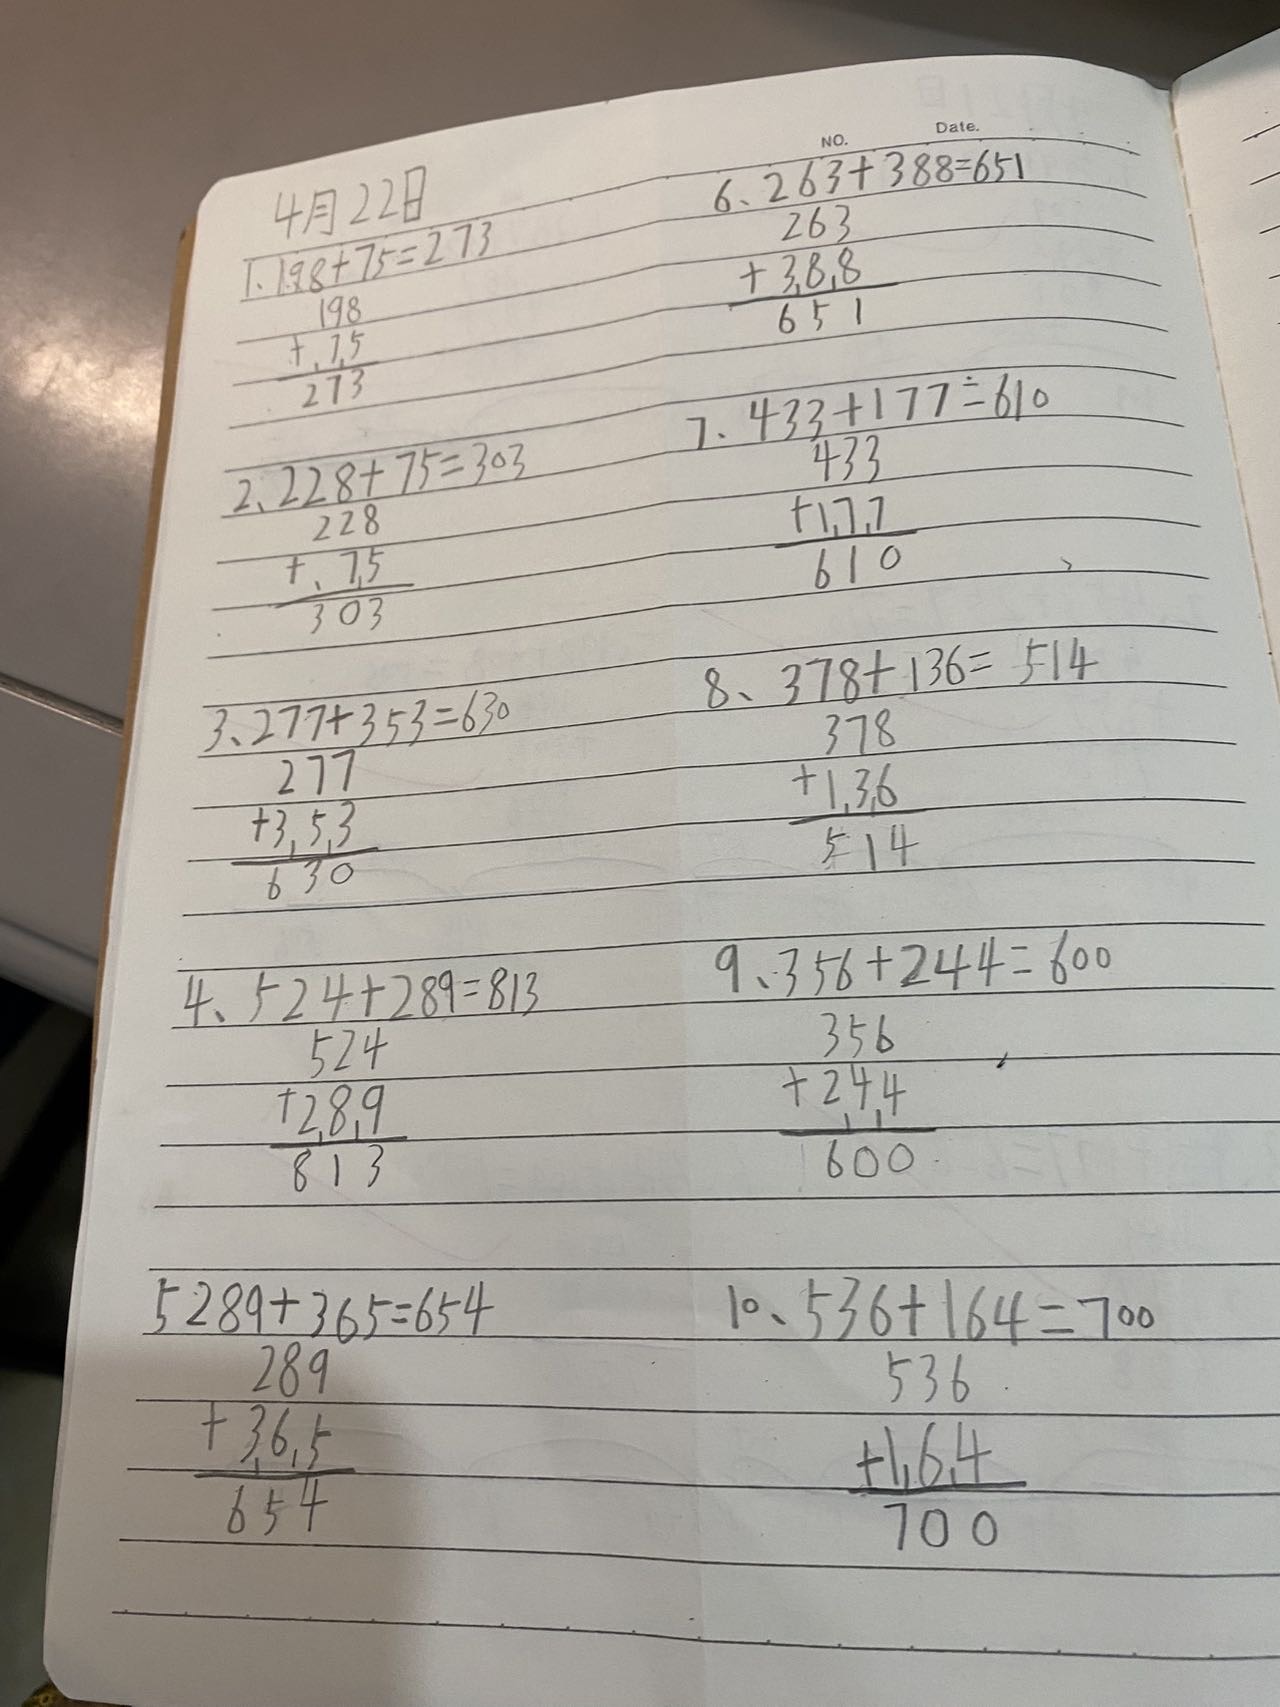 4月22日
1、198+75=273
198
+75
273
2、228+75=303
228
+75
303
3、277+353=630
277
+353
630
4、524+289=813
524
+289
813
5 289+365=654
289
+365
654
NO. Date.
6、263+388=651
263
+388
651
7、433+177=610
433
+177
610
8、378+136=514
378
+136
514
9、356+244=600
356
+244
600
10、536+164=700
536
+164
700